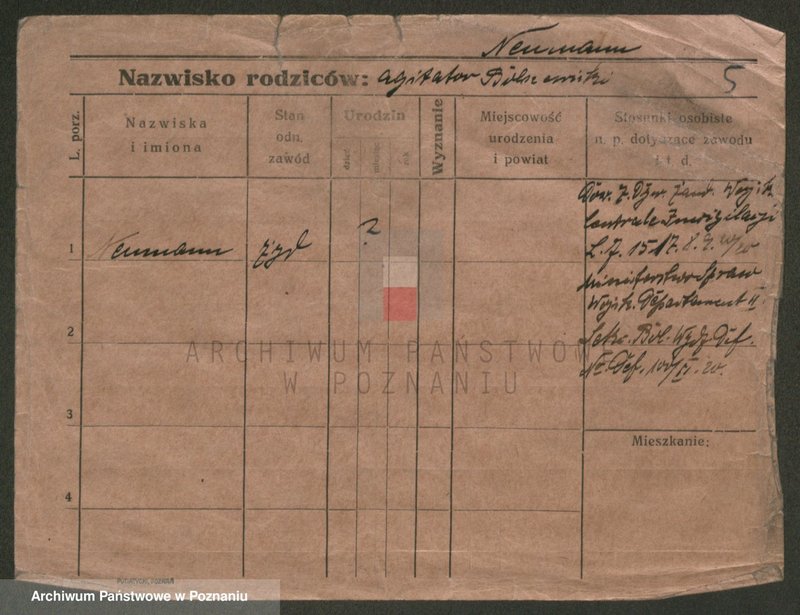 Neumann
Nazwisko rodziców: agitator Bolszewicki
5
L. porz.
Nazwiska
i imiona
Stan
odn.
zawód
Urodzin
dzień
miesiąc
rok
Wyznanie
Miejscowość
urodzenia
i powiat
Stosunki osobiste
n. p. dotyczące zawodu
i t. d.
1
Neumann
żyd
?
Dow. 7. Dyw. Żand. Wojsk.
Centrala Inwigilacji
L. 7. 1517. 8. 9.
Ministerstwo Spraw
Wojsk. Departament II.
Sekr. Wydz. Def.
No Def. 20.
2
3
4
Mieszkanie:
ARCHIWUM PAŃSTWOW
W POZNANIU
PUTIATYCKI, POZNAŃ
Archiwum Państwowe w Poznaniu